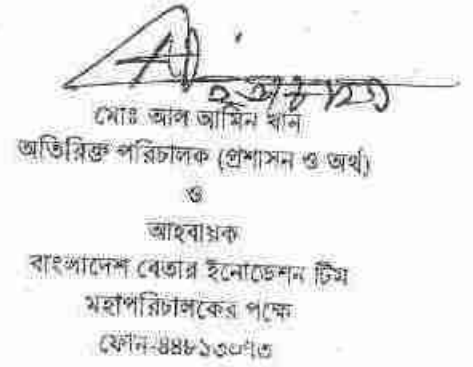 মোঃ আল আমিন খান
অতিরিক্ত পরিচালক (প্রশাসন ও অর্থ)
ও
আহবায়ক
বাংলাদেশ বেতার ইনোভেশন টিম
মহাপরিচালকের পক্ষে